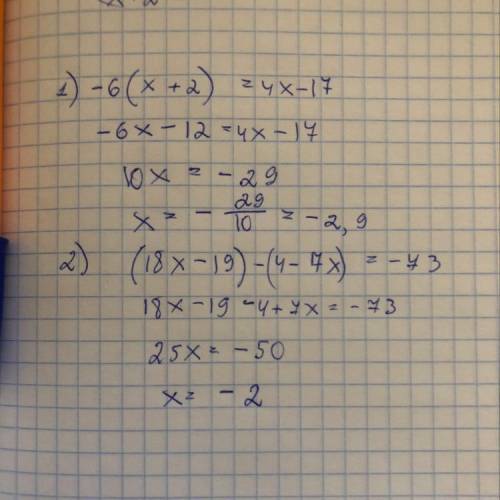 1) -6(x+2) = 4x-17
-6x-12=4x-17
10x = -29
x = - 29/10 = -2,9
2) (18x-19)-(4-7x) = -73
18x-19-4+7x=-73
25x=-50
x= -2